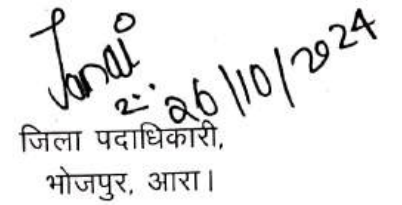 26/10/2024
जिला पदाधिकारी,
भोजपुर, आरा।